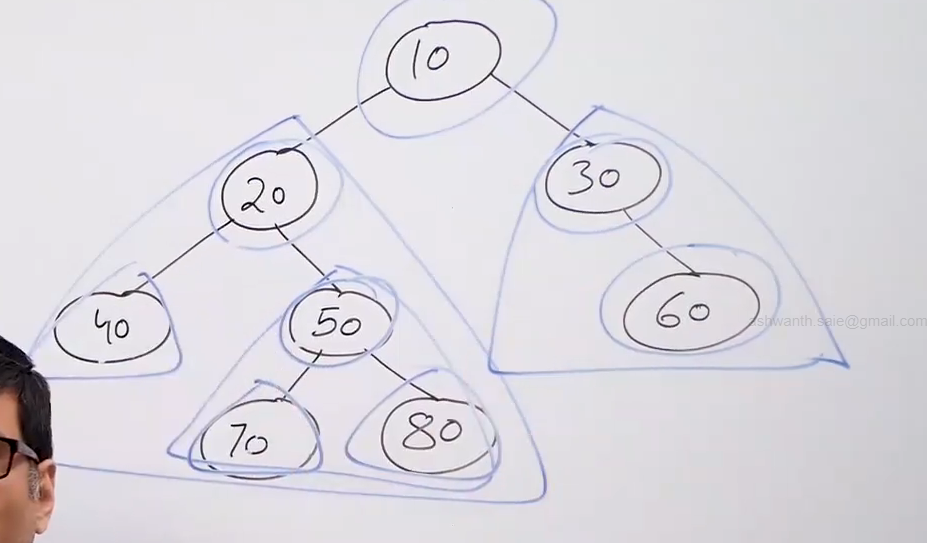 10
20
30
40
50
60
70
80
ashwanth.saie@gmail.com